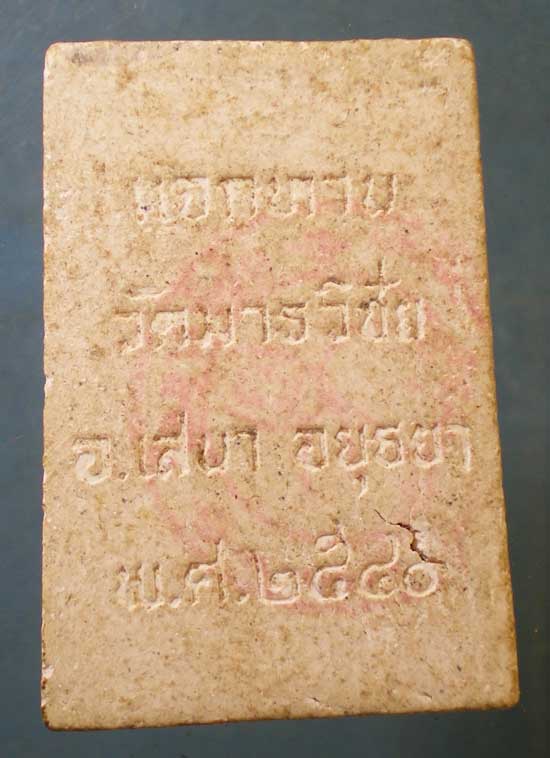 แจกทาน
วัดมารวิชัย
อ.เสนา อยุธยา
พ.ศ.๒๕๔๐